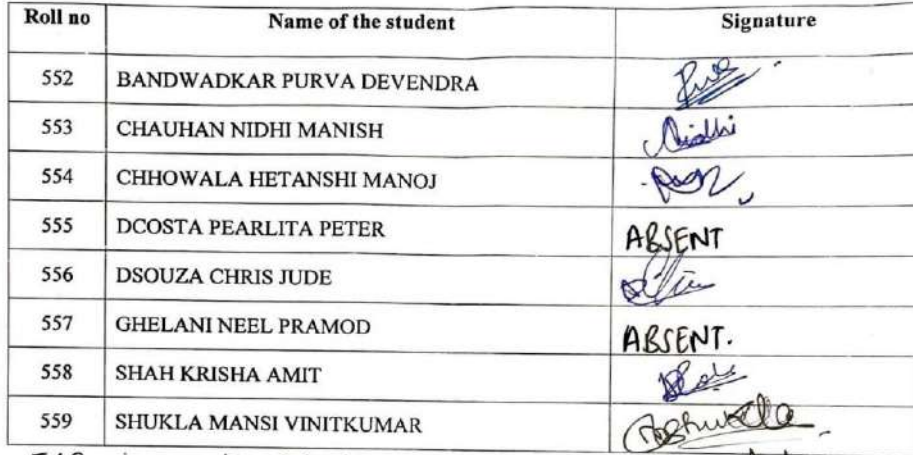 Roll no Name of the student Signature
552 BANDWADKAR PURVA DEVENDRA
553 CHAUHAN NIDHI MANISH Nidhi
554 CHHOWALA HETANSHI MANOJ
555 DCOSTA PEARLITA PETER ABSENT
556 DSOUZA CHRIS JUDE
557 GHELANI NEEL PRAMOD ABSENT.
558 SHAH KRISHA AMIT
559 SHUKLA MANSI VINITKUMAR